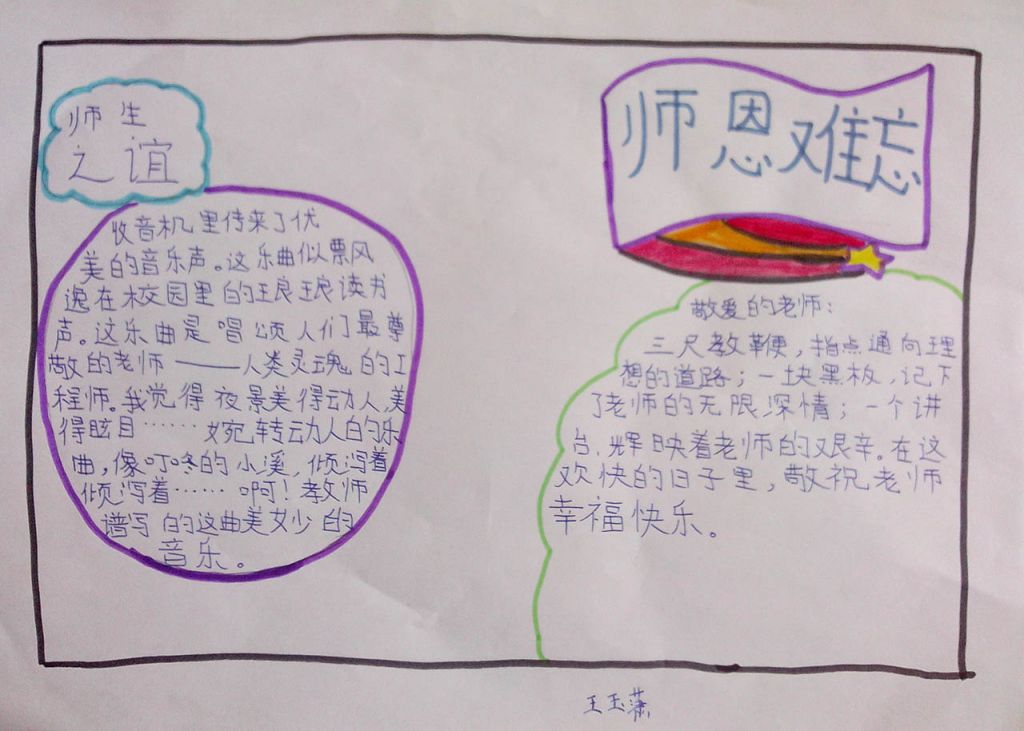 师生
之谊
收音机里传来了优
美的音乐声。这乐曲似票风
逸在校园里的琅琅读书
声。这乐曲是唱颂人们最尊
敬的老师——人类灵魂的工
程师。我觉得夜景美得动人,美
得眩目……婉转动人的乐
曲,像叮咚的小溪,倾泻着
倾泻着……啊!教师
谱写的这曲美妙的
音乐。
师恩难忘
敬爱的老师:
三尺教鞭,指点通向理
想的道路;一块黑板,记下
了老师的无限深情;一个讲
台,辉映着老师的艰辛。在这
欢快的日子里,敬祝老师
幸福快乐。
王玉潇